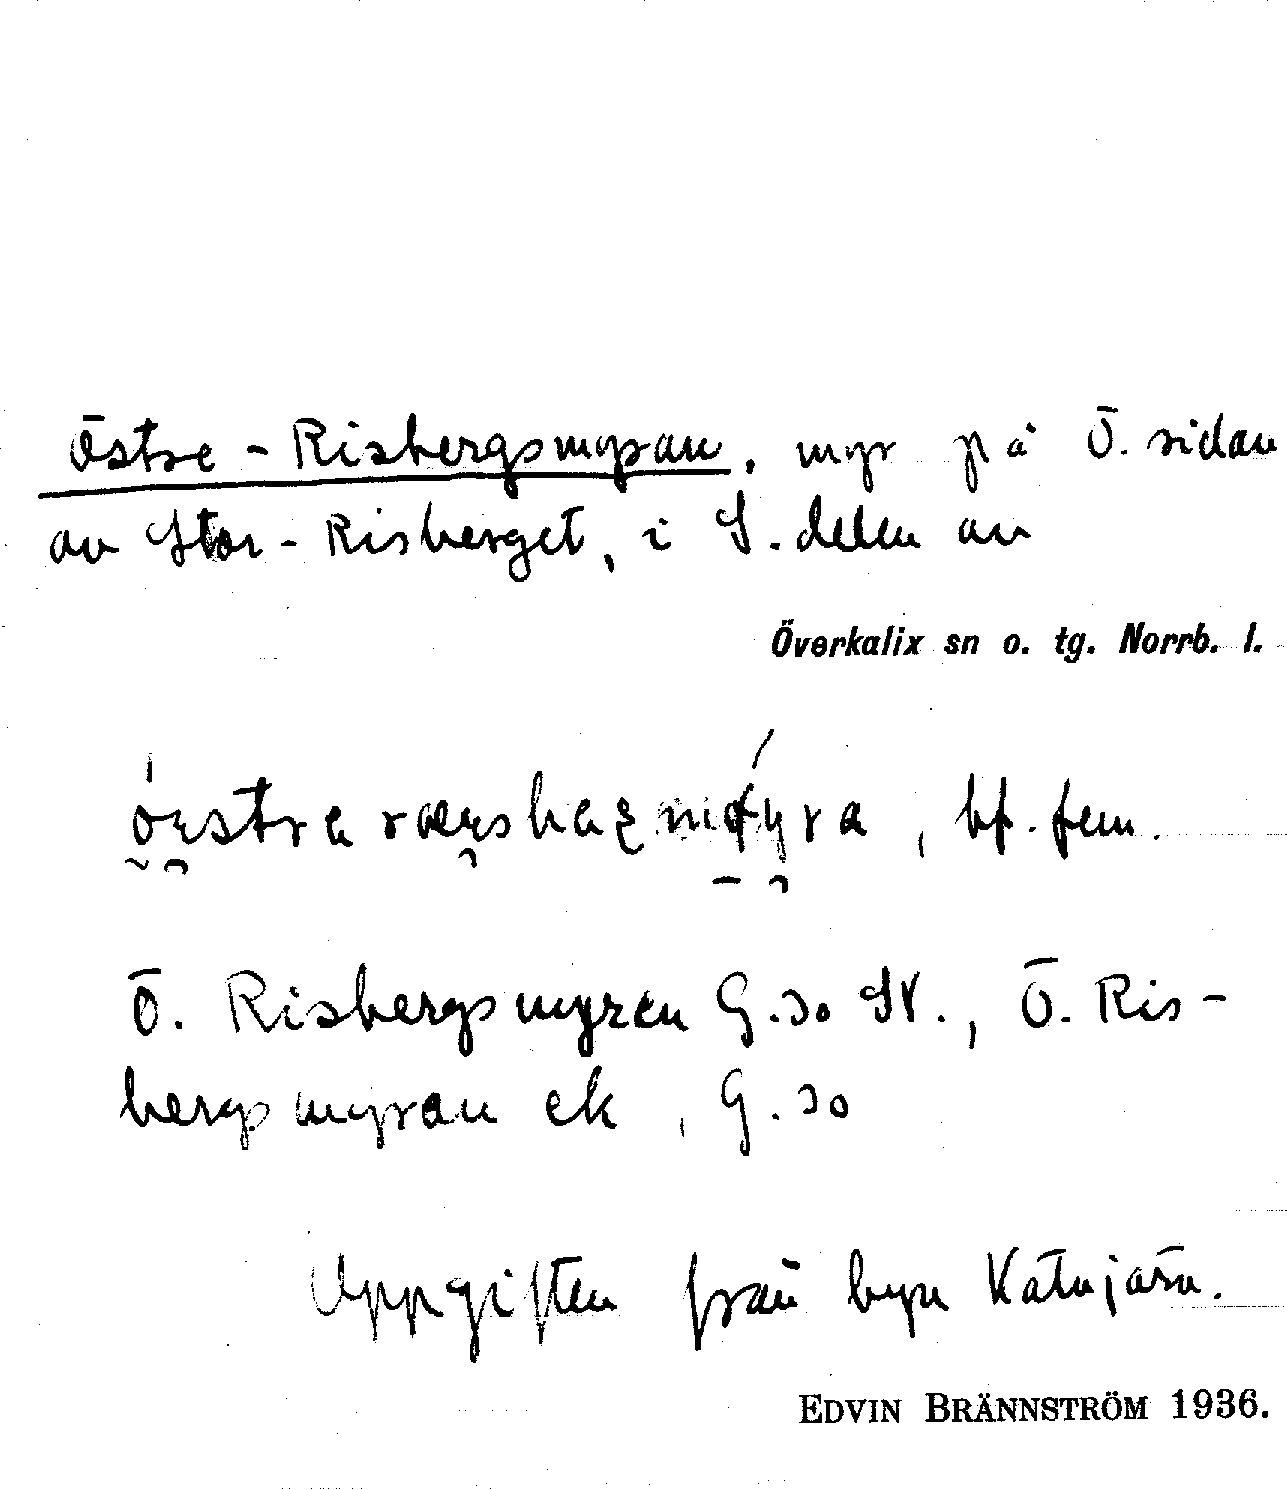 Östre-Risbergsmyran, myr på Ö. sidan
av Stor-Risberget, i S. delen av
Överkalix sn o. tg. Norrb. l.
bf. fem.
Ö. Risbergsmyren G.so SV., Ö. Ris-
bergsmyran ek, G.so
Uppgiften från byn
EDVIN BRÄNNSTRÖM 1936.